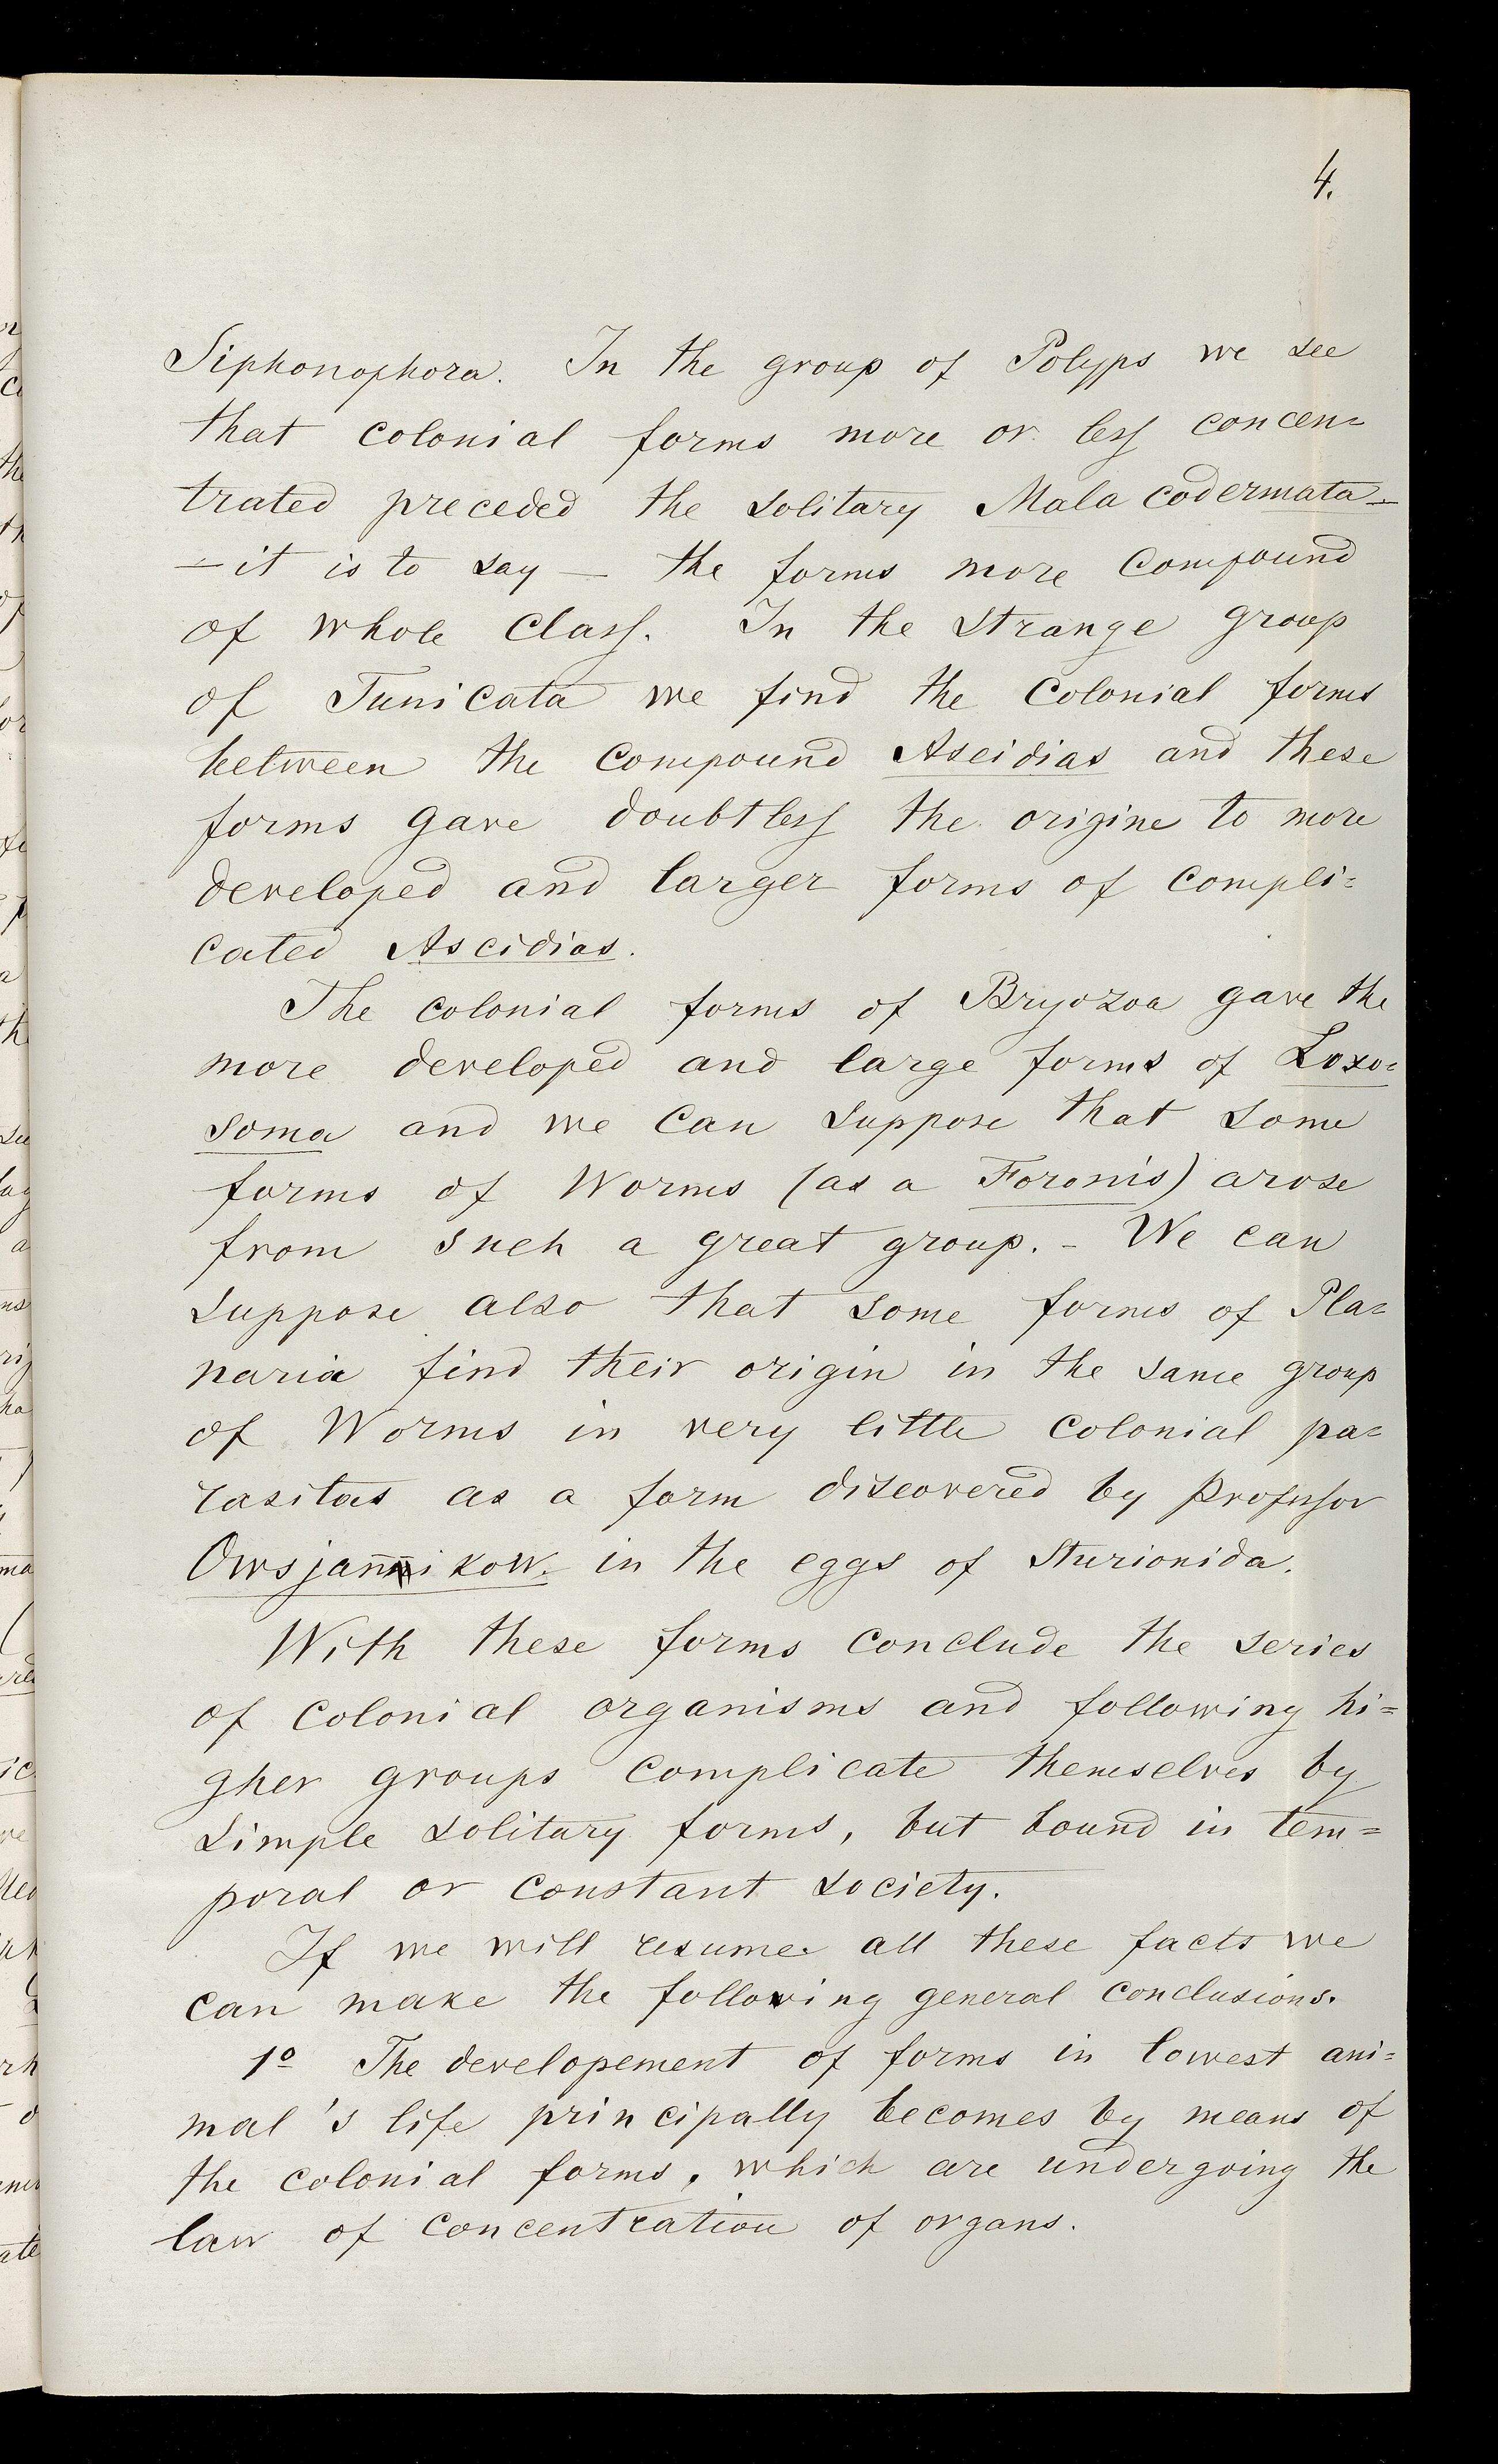 4.
Siphonophora. In the group of Polyps we see
that colonial forms more or less concen=
trated preceded the solitary Malacodermata —
— it is to say — the forms more compound
of whole Class. In the strange group
of Tunicata we find the colonial forms
between the compound Ascidias and these
forms gave doubtless the origine to more
developed and larger forms of compli=
cated Ascidias.
The colonial forms of Bryozoa gave the
more developed and large forms of Loxo=
soma and we can suppose that some
forms of Worms (as a Foronis) arose
from such a great group. - We can
suppose also that some forms of Pla=
naria find their origin in the same group
of Worms in very little colonial pa=
rasitas as a form discovered by Professor
Owsjannikow. in the eggs of Sturionida.
With these forms conclude the series
of colonial organisms and following hi=
gher groups complicate themselves by
simple solitary forms, but bound in tem=
poral or constant society.
If we will resume all these facts we
can make the following general conclusions.
1º The developement of forms in lowest ani=
mal's life principally becomes by means of
the colonial forms, which are undergoing the
law of concentration of organs.